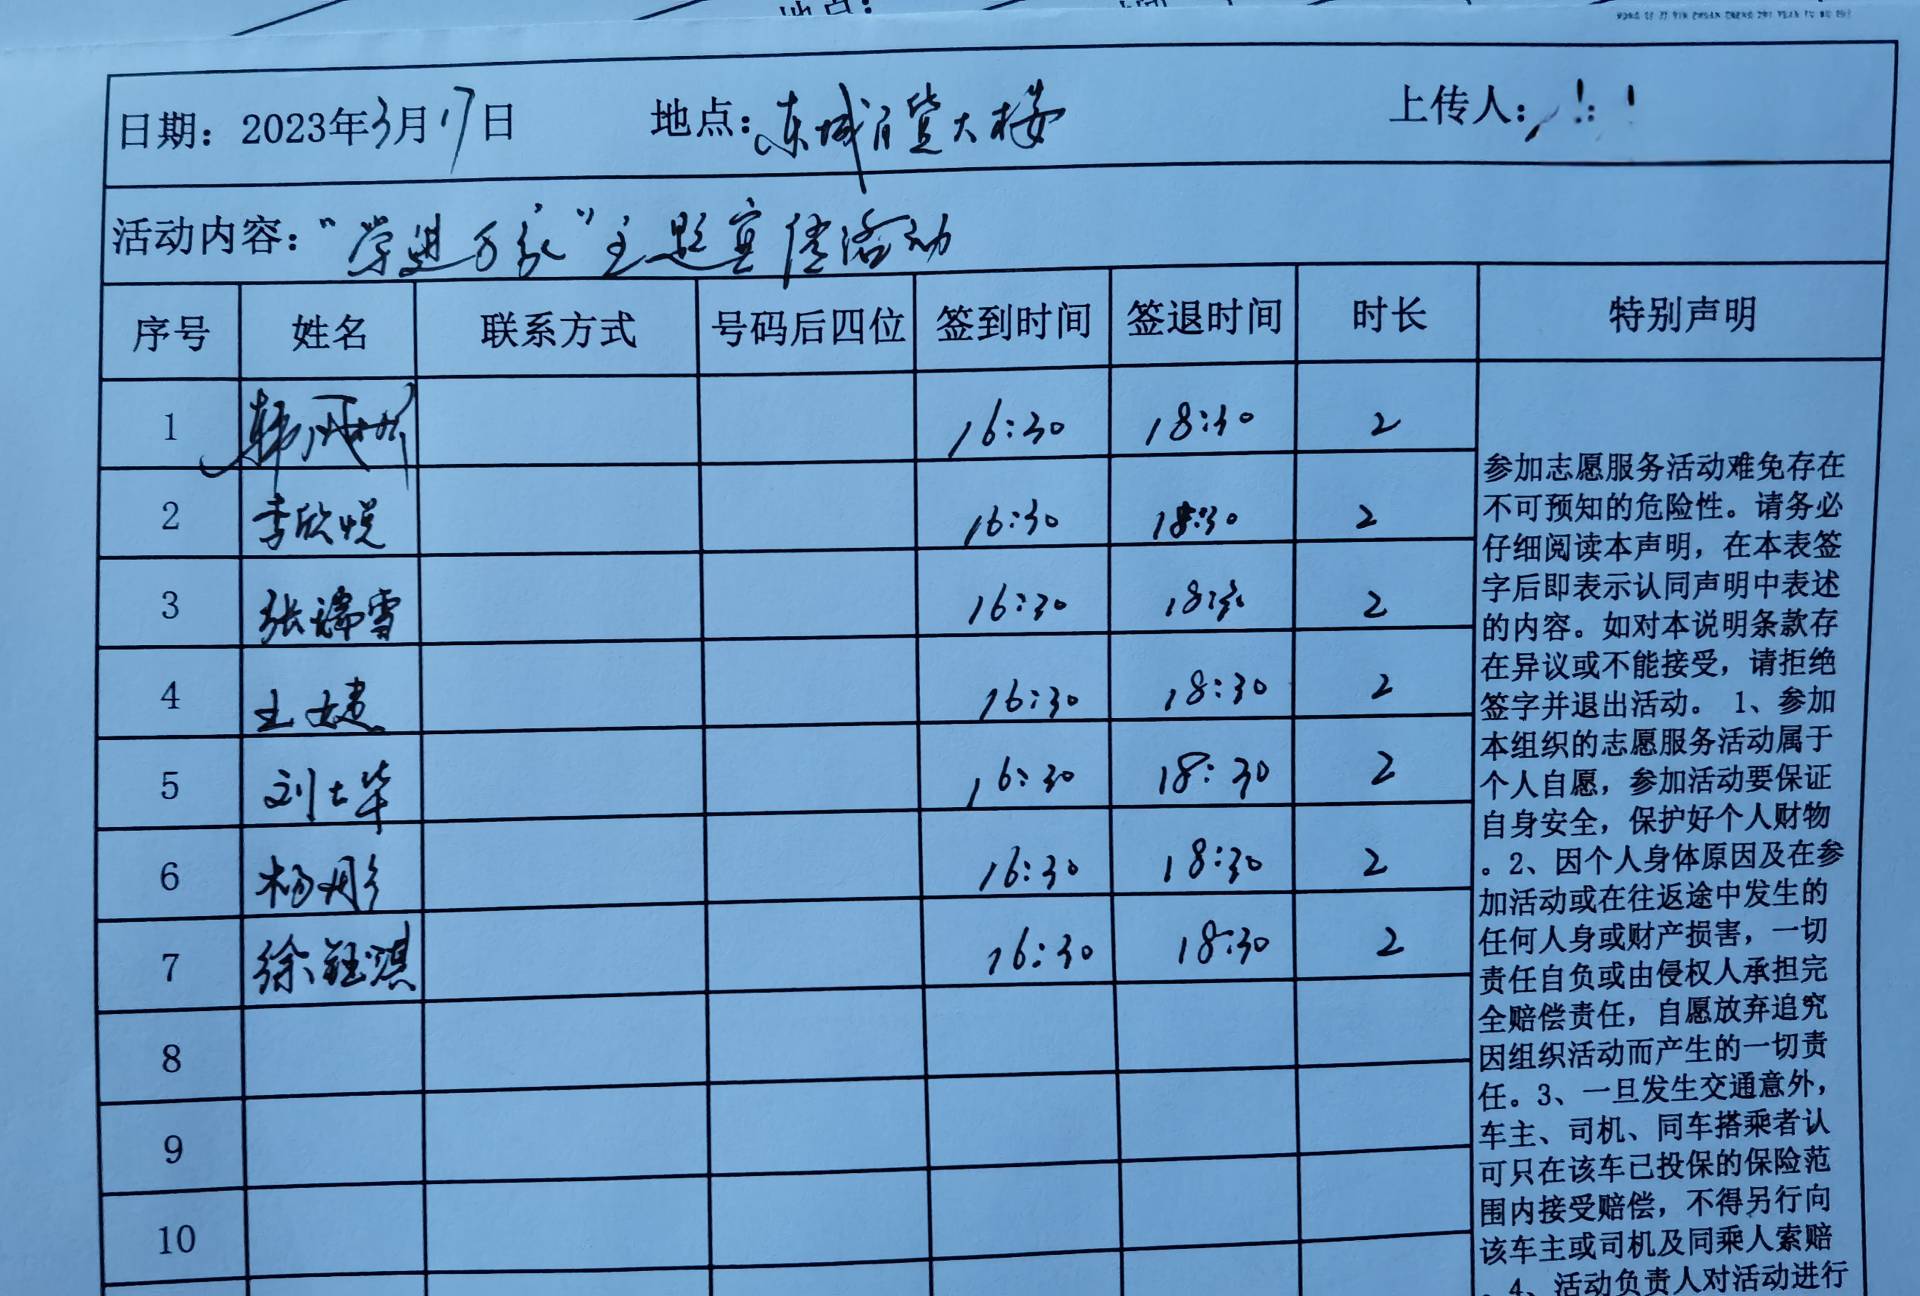 日期：2023年3月17日 地点：东城百货大楼 上传人：
活动内容：“学进万家”主题宣传活动
序号 姓名 联系方式 号码后四位 签到时间 签退时间 时长 特别声明
1 16:30 18:30 2
2 李欣悦 16:30 18:30 2
3 张瑞雪 16:30 18:30 2
4 王婕 16:30 18:30 2
5 刘士华 16:30 18:30 2
6 杨彤 16:30 18:30 2
7 徐钰淇 16:30 18:30 2
8
9
10
参加志愿服务活动难免存在
不可预知的危险性。请务必
仔细阅读本声明，在本表签
字后即表示认同声明中表述
的内容。如对本说明条款存
在异议或不能接受，请拒绝
签字并退出活动。 1、参加
本组织的志愿服务活动属于
个人自愿，参加活动要保证
自身安全，保护好个人财物
。2、因个人身体原因及在参
加活动或在往返途中发生的
任何人身或财产损害，一切
责任自负或由侵权人承担完
全赔偿责任，自愿放弃追究
因组织活动而产生的一切责
任。3、一旦发生交通意外，
车主、司机、同车搭乘者认
可只在该车已投保的保险范
围内接受赔偿，不得另行向
该车主或司机及同乘人索赔
。4、活动负责人对活动进行